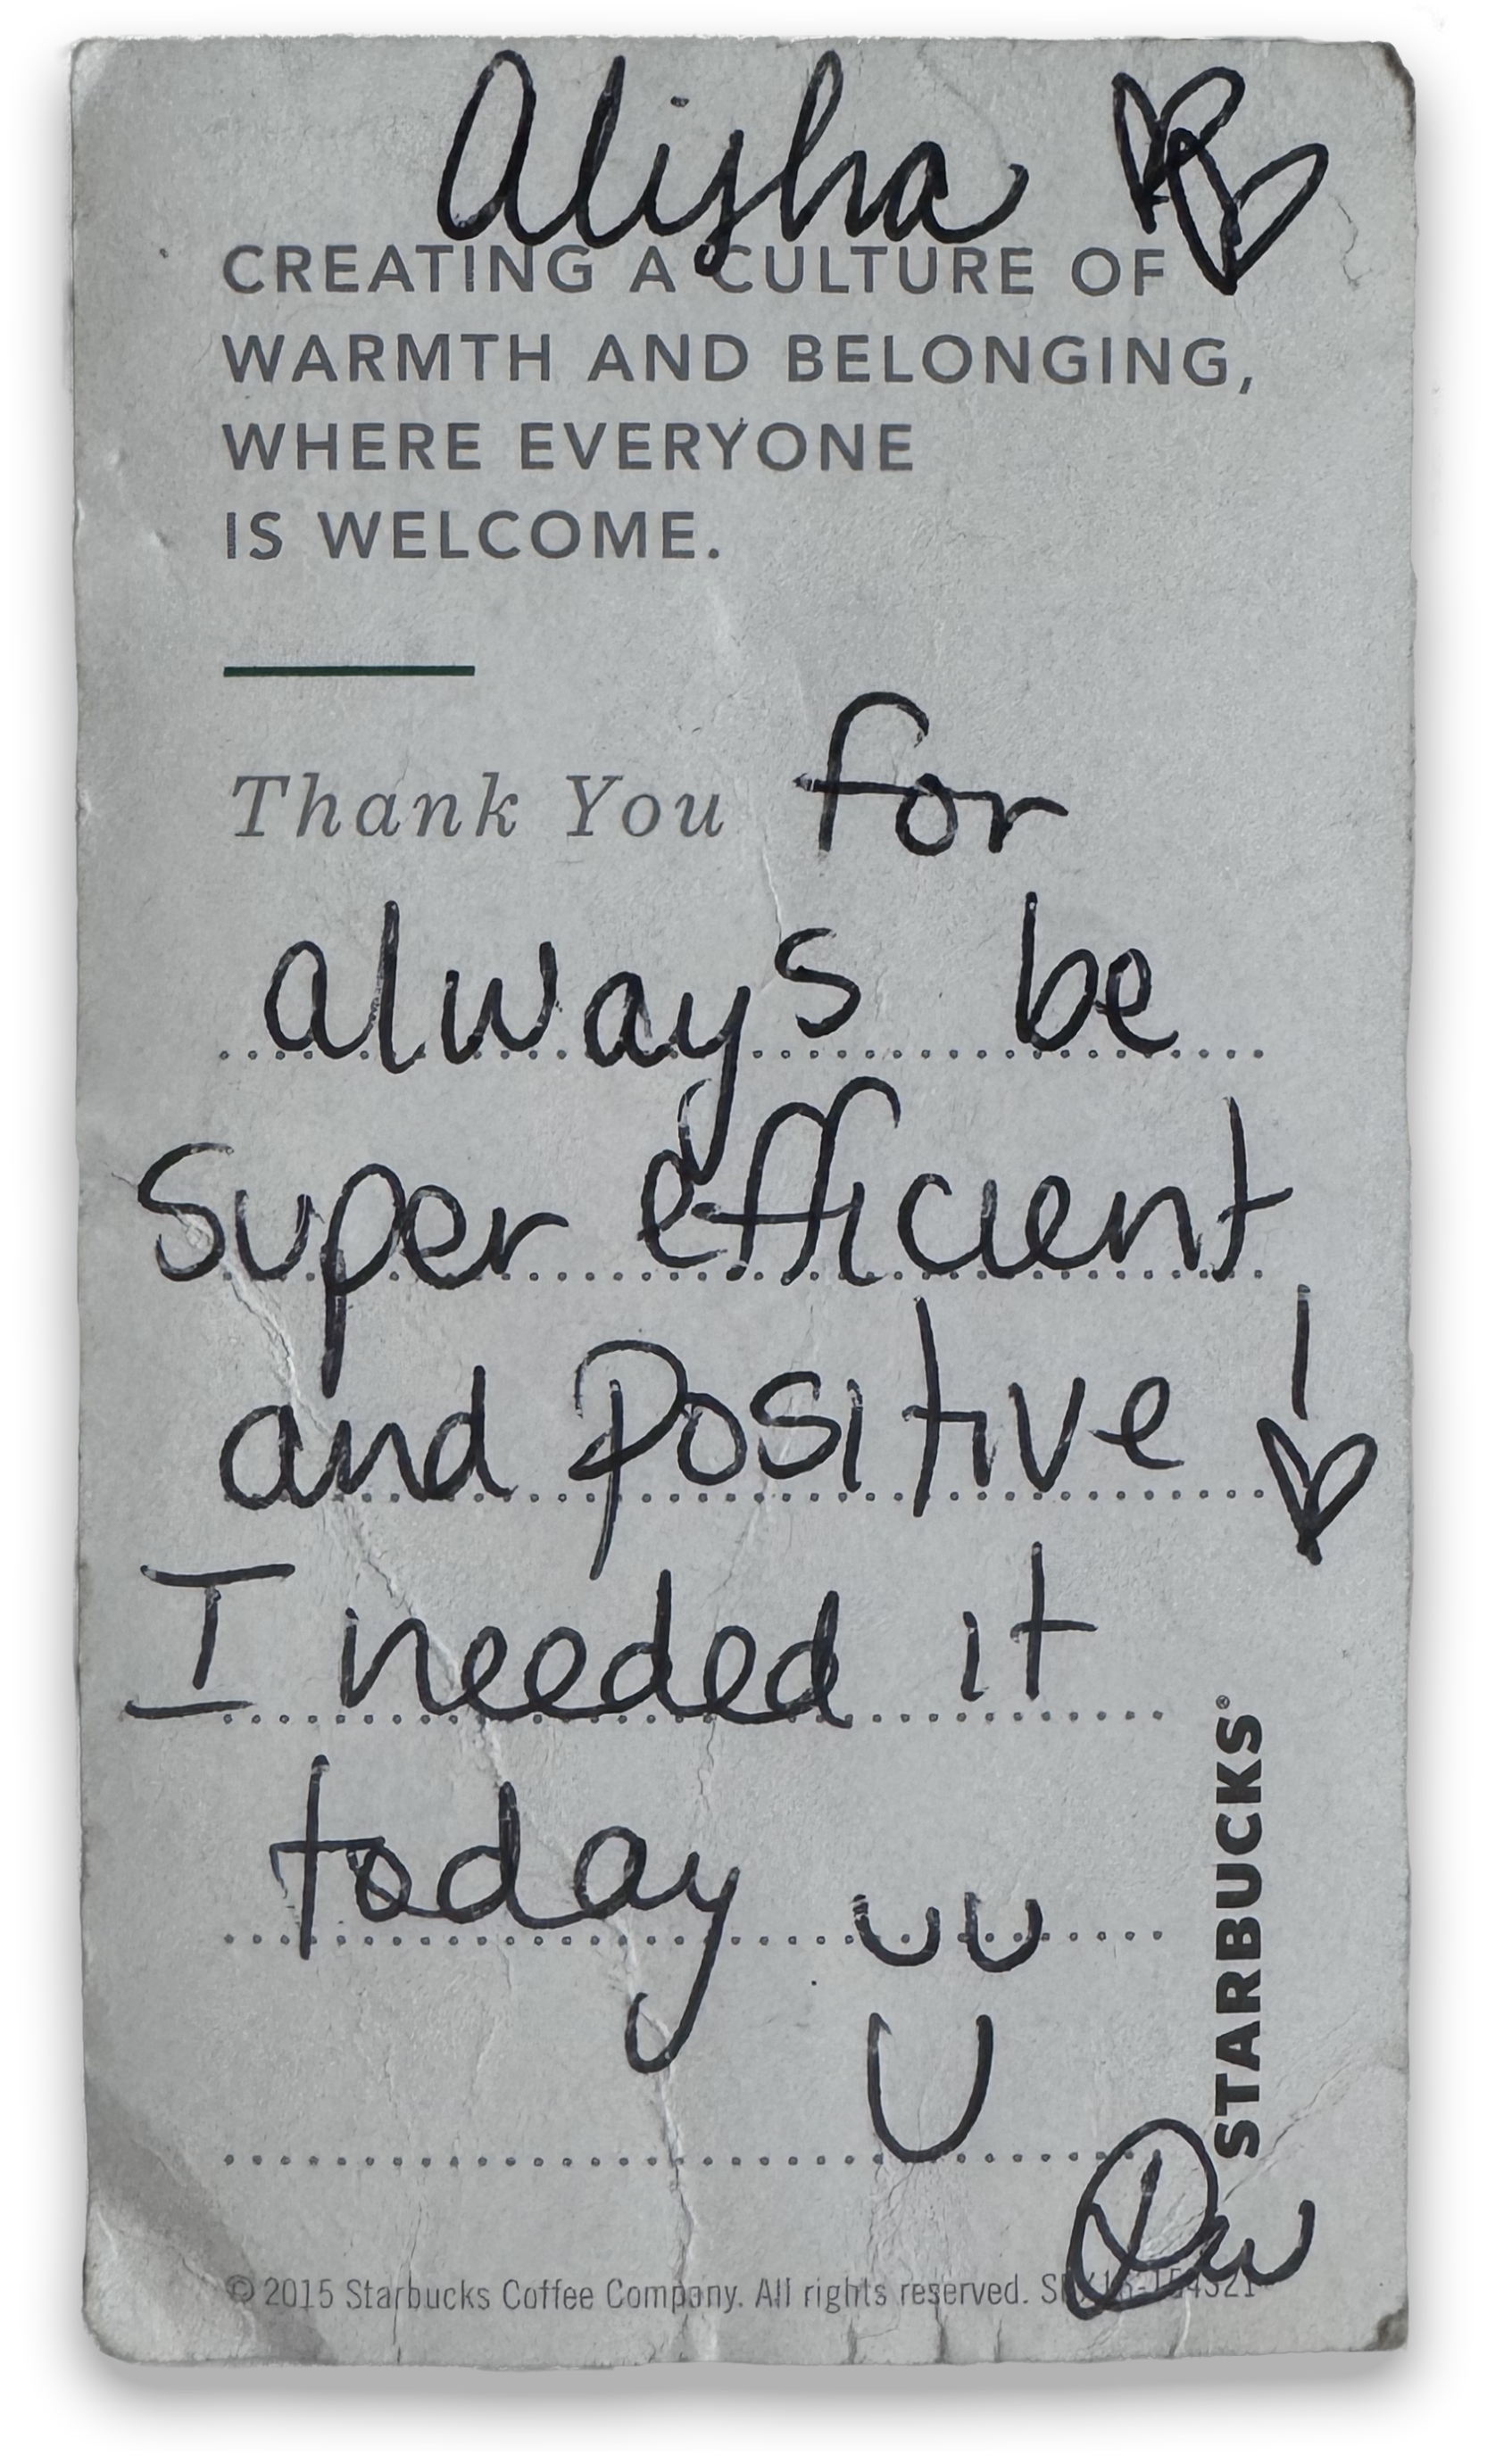 Alisha
CREATING A CULTURE OF
WARMTH AND BELONGING,
WHERE EVERYONE
IS WELCOME.
Thank You for
always be
Super efficient
and Positive !
I needed it
today
STARBUCKS®
© 2015 Starbucks Coffee Company. All rights reserved.